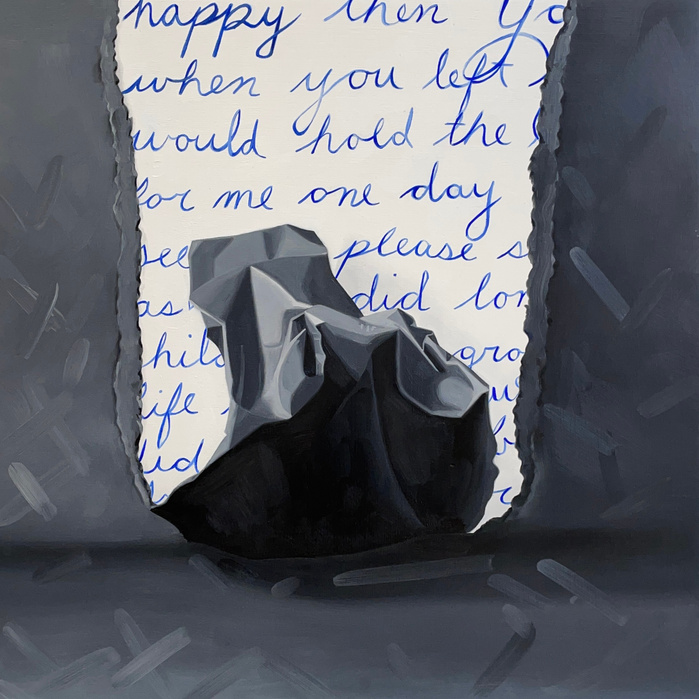 happy then Yo
when you left
would hold the
for me one day
see please s
as did lon
child gro
life
did